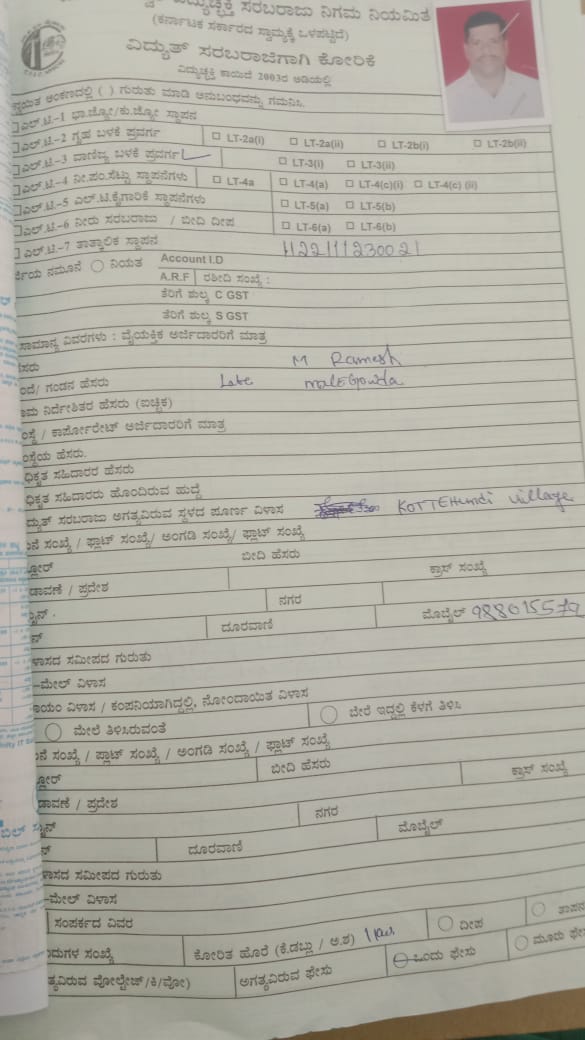 ವಿದ್ಯುಚ್ಛಕ್ತಿ ಸರಬರಾಜು ನಿಗಮ ನಿಯಮಿತ
(ಕರ್ನಾಟಕ ಸರ್ಕಾರದ ಸ್ವಾಮ್ಯಕ್ಕೆ ಒಳಪಟ್ಟಿದೆ)
ವಿದ್ಯುತ್ ಸರಬರಾಜಿಗಾಗಿ ಕೋರಿಕೆ
ವಿದ್ಯುಚ್ಛಕ್ತಿ ಕಾಯಿದೆ 2003ರ ಅಡಿಯಲ್ಲಿ
ಅಂಕಣದಲ್ಲಿ ( ) ಗುರುತು ಮಾಡಿ ಅನುಬಂಧವನ್ನು ಗಮನಿಸಿ.
ಎಲ್.ಟಿ.-1 ಭಾ.ಜ್ಯೋ/ಕು.ಜ್ಯೋ ಸ್ಥಾಪನ
ಎಲ್.ಟಿ.-2 ಗೃಹ ಬಳಕೆ ಪ್ರವರ್ಗ LT-2a(i) LT-2a(ii) LT-2b(i) LT-2b(ii)
ಎಲ್.ಟಿ.-3 ವಾಣಿಜ್ಯ ಬಳಕೆ ಪ್ರವರ್ಗ LT-3(i) LT-3(ii)
ಎಲ್.ಟಿ.-4 ನೀ.ಪಂ.ಸೆಟ್ಟು ಸ್ಥಾಪನೆಗಳು LT-4a LT-4(a) LT-4(c)(i) LT-4(c) (ii)
ಎಲ್.ಟಿ.-5 ಎಲ್.ಟಿ.ಕೈಗಾರಿಕೆ ಸ್ಥಾಪನೆಗಳು LT-5(a) LT-5(b)
ಎಲ್.ಟಿ.-6 ನೀರು ಸರಬರಾಜು / ಬೀದಿ ದೀಪ LT-6(a) LT-6(b)
ಎಲ್.ಟಿ.-7 ತಾತ್ಕಾಲಿಕ ಸ್ಥಾಪನೆ
ನಮೂನೆ ನಿಯತ Account I.D
A.R.F ರಶೀದಿ ಸಂಖ್ಯೆ :
ತೆರಿಗೆ ಶುಲ್ಕ C GST
ತೆರಿಗೆ ಶುಲ್ಕ S GST
ಸಾಮಾನ್ಯ ವಿವರಗಳು : ವೈಯಕ್ತಿಕ ಅರ್ಜಿದಾರರಿಗೆ ಮಾತ್ರ
M Ramesh
ಗಂಡನ ಹೆಸರು Late maleGowda
ನಿರ್ದೇಶಿತರ ಹೆಸರು (ಐಚ್ಛಿಕ)
/ ಕಾರ್ಪೋರೇಟ್ ಅರ್ಜಿದಾರರಿಗೆ ಮಾತ್ರ
ಹೆಸರು.
ಸಹಿದಾರರ ಹೆಸರು
ಸಹಿದಾರರು ಹೊಂದಿರುವ ಹುದ್ದೆ
ಸರಬರಾಜು ಅಗತ್ಯವಿರುವ ಸ್ಥಳದ ಪೂರ್ಣ ವಿಳಾಸ KOTTEHundi village
ಸಂಖ್ಯೆ / ಫ್ಲಾಟ್ ಸಂಖ್ಯೆ/ ಅಂಗಡಿ ಸಂಖ್ಯೆ/ ಪ್ಲಾಟ್ ಸಂಖ್ಯೆ
ಬೀದಿ ಹೆಸರು
/ ಪ್ರದೇಶ ಕ್ರಾಸ್ ಸಂಖ್ಯೆ
ನಗರ
ದೂರವಾಣಿ ಮೊಬೈಲ್
ಸಮೀಪದ ಗುರುತು
-ಮೇಲ್ ವಿಳಾಸ
ವಿಳಾಸ / ಕಂಪನಿಯಾಗಿದ್ದಲ್ಲಿ, ನೋಂದಾಯಿತ ವಿಳಾಸ
ಮೇಲೆ ತಿಳಿಸಿರುವಂತೆ ಬೇರೆ ಇದ್ದಲ್ಲಿ ಕೆಳಗೆ ತಿಳಿಸಿ
ಸಂಖ್ಯೆ / ಪ್ಲಾಟ್ ಸಂಖ್ಯೆ / ಅಂಗಡಿ ಸಂಖ್ಯೆ / ಫ್ಲಾಟ್ ಸಂಖ್ಯೆ
ಬೀದಿ ಹೆಸರು
/ ಪ್ರದೇಶ ಕ್ರಾಸ್ ಸಂಖ್ಯೆ
ನಗರ
ದೂರವಾಣಿ ಮೊಬೈಲ್
ಸಮೀಪದ ಗುರುತು
-ಮೇಲ್ ವಿಳಾಸ
ಸಂಪರ್ಕದ ವಿವರ ದೀಪ
ಸಂಖ್ಯೆ ಕೋರಿತ ಹೊರೆ (ಕೆ.ಡಬ್ಲು / ಅ.ಶ)
ವೋಲ್ಟೇಜ್/ಕಿ/ವೋ) ಅಗತ್ಯವಿರುವ ಫೇಸು ಒಂದು ಫೇಸು ಮೂರು ಫೇಸು